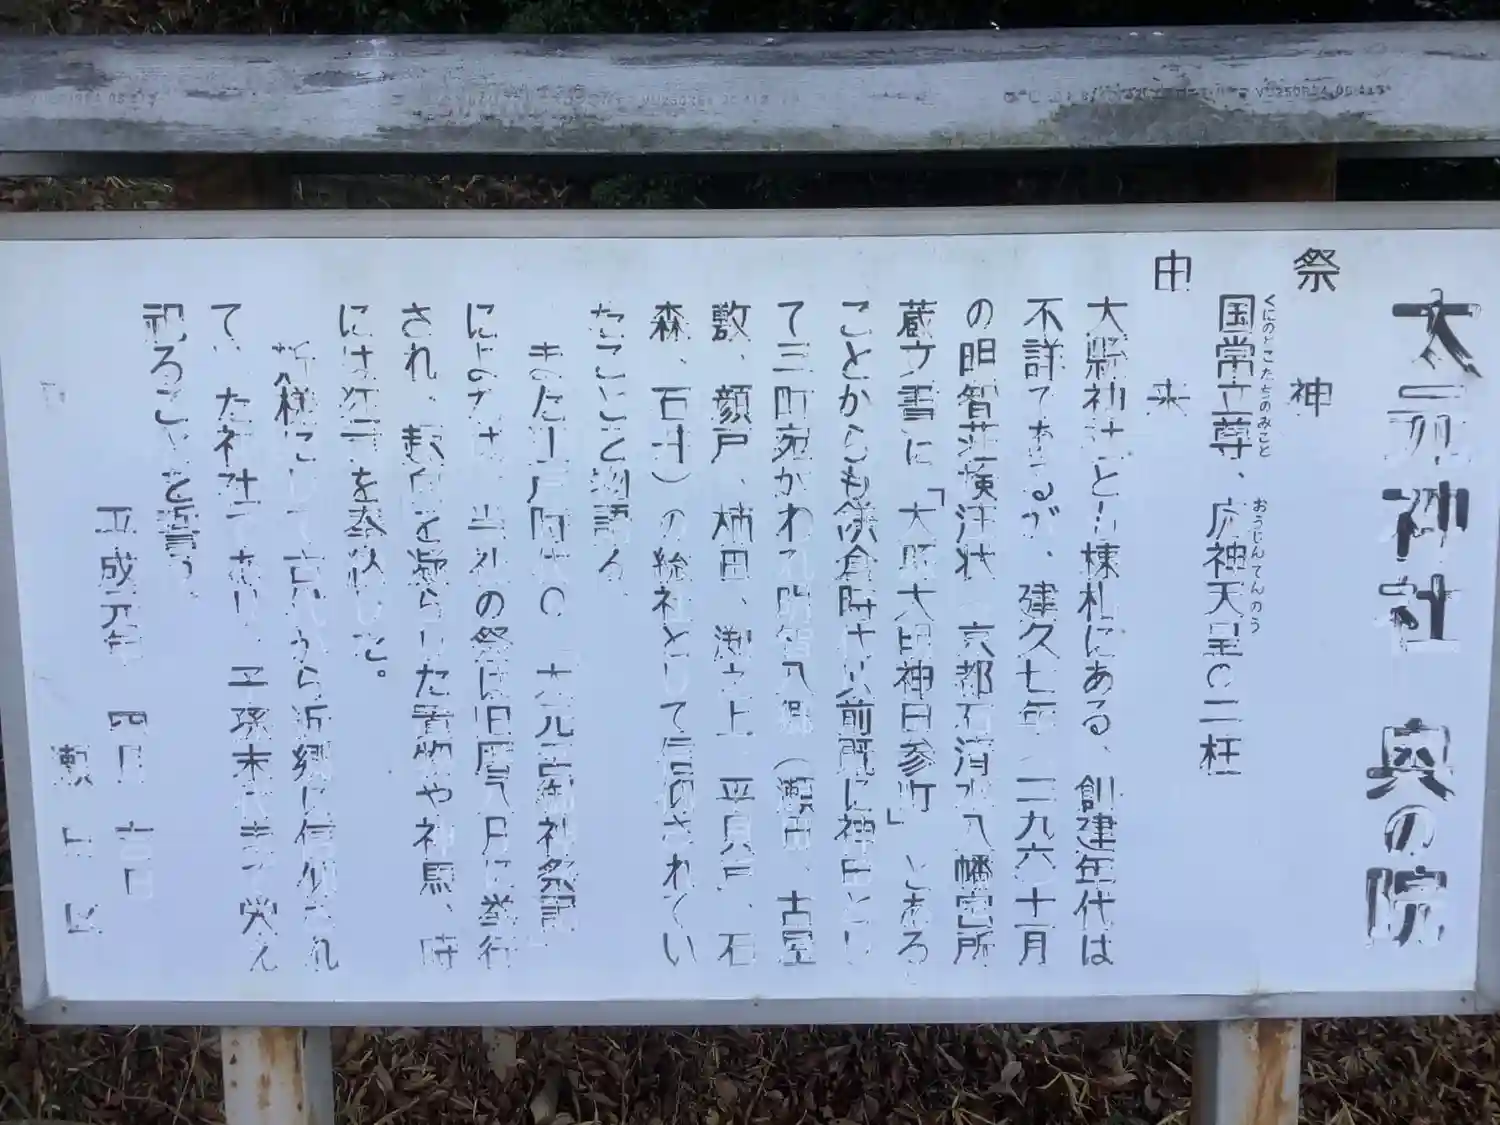 大元神社 奥の院
祭神
国常立尊、応神天皇の二柱
くにのとこたちのみこと
おうじんてんのう
由来
大縣神社とも棟札にある、創建年代は
不詳であるが、建久七年(一一九六)十月
の明智荘検注状(京都石清水八幡宮所
蔵文書)に「大縣大明神日参町」とある
ことからも鎌倉時代以前既に神田とし
て三町宛がわれ明智八郷(瀬田、古屋
敷、顔戸、柿田、渕之上、平貝戸、石
森、石井)の総社として信仰されてい
たことを物語る。
また江戸時代の「大元宮御神祭記」
によれば、当社の祭は旧暦八月に挙行
され、趣向を凝らした置物や神馬、時
には狂言を奉納した。
氏様にして京代から近郷に信仰され
ていた神社であり、子孫末代まで栄え
祀ることを誓う。
平成元年 四月 吉日
瀬田区